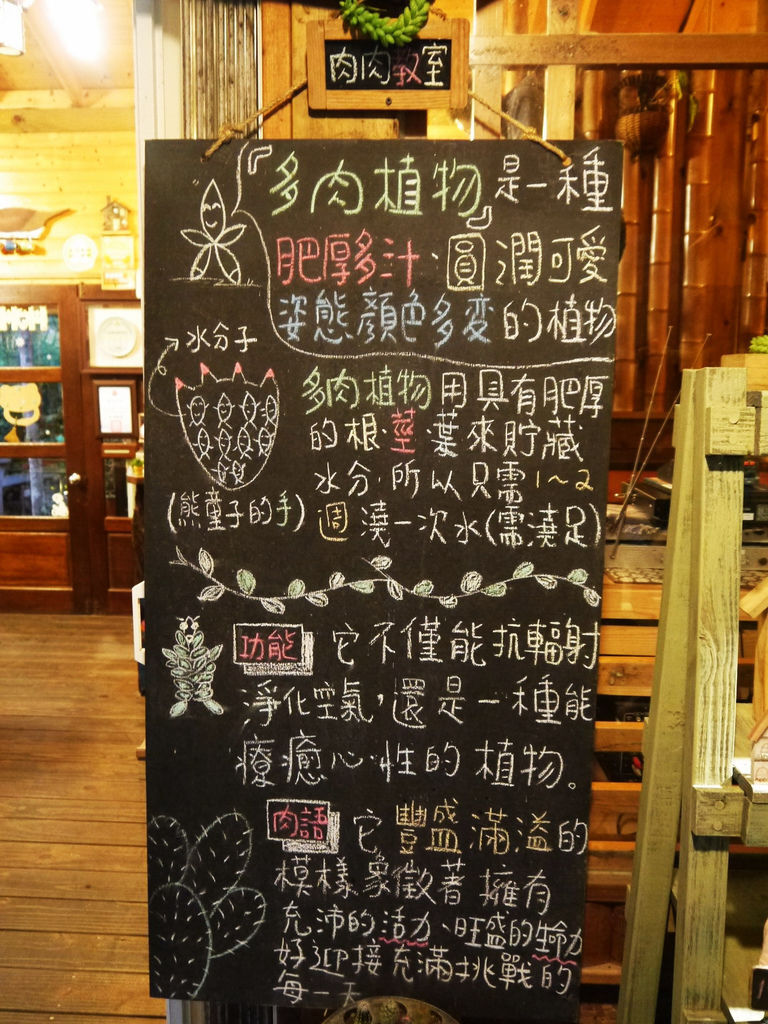 肉肉教室
「多肉植物」是一種
肥厚多汁·圓潤可愛
姿態顏色多変的植物
水分子
多肉植物用具有肥厚
的根·莖·葉來貯藏
水分·所以只需1~2
週澆一次水(需澆足)
(熊童子的手)
功能 它不僅能抗輻射
淨化空氣,還是一種能
療癒心性的植物。
肉語 它豐盛滿溢的
模樣象徵著擁有
充沛的活力、旺盛的生命力
好迎接充滿挑戰的
每一天